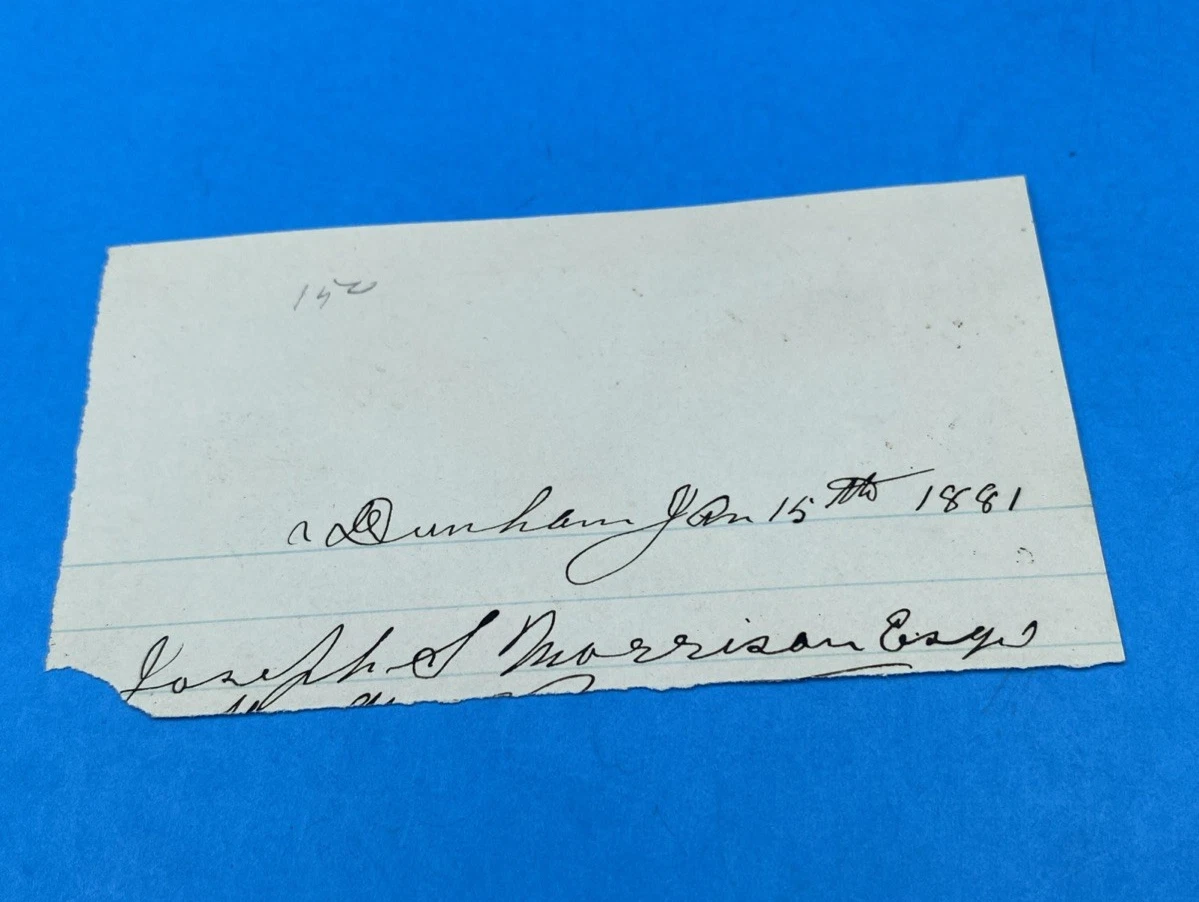 Dunham Jan 15th 1881
Joseph S Morrison Esqr